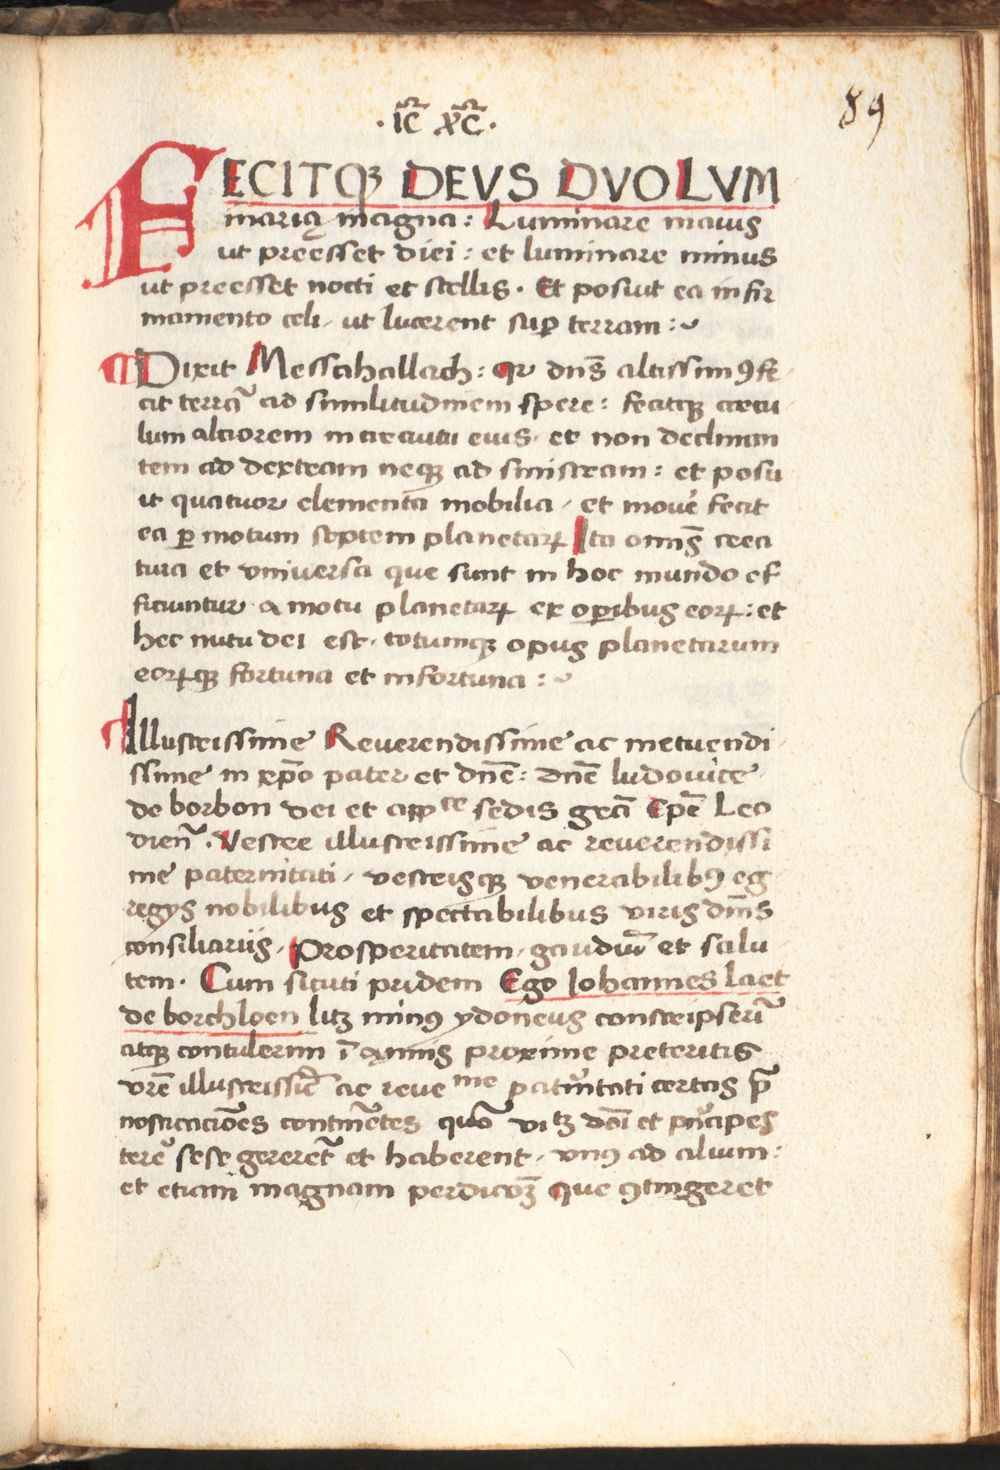 89
· ic̄ xc̄ ·
FECITQꝫ DEVS DVO LVM
maria magna : Luminare maius
ut preesset diei : et luminare minus
ut preesset nocti et stellis . Et posuit ea in fir
mamento celi , ut lucerent suꝑ terram :~
¶ Dixit Messahallach : qꝛ dn̄s altissimꝰ fe
cit terrā ad similitudinem spere : fecitqꝫ circu
lum alciorem in circuitu eius , et non declinan
tem ad dexteram neqꝫ ad sinistram : et posu
it quatuor elementa mobilia , et mouē fecit
ea ꝑ motum septem planetaꝝ Ita omīs crea
tura et vniuersa que sunt in hoc mundo ef
ficiuntur a motu planetaꝝ ex oꝑibus eoꝝ : et
hec nutu dei est , totumqꝫ opus planetarum
eoꝝqꝫ fortuna et infortuna :~
¶ Illustrissime Reuerendissime ac metuendi
ssime in xp̄o pater et dn̄e : dn̄e ludouice
de borbon dei et app̄ce sedis gr̄a Ep̄e Leo
dien̄ . Vestre illustrissime ac reuerendissi
me paternitati , vestrisqꝫ venerabilibꝰ eg
regys nobilibus et spectabilibus viris dn̄is
consiliariis , Prosperitatem , gaudiū et salu
tem . Cum sicuti pridem Ego Iohannes Laet
de borchloen litꝫ minꝰ ydoneus conscripserī
atqꝫ contulerim ī annis proxime preteritis
vr̄e illustrissīe ac reueme pat̄nitati certas p̄
nosticacōes continētes quō vitꝫ dn̄i et pn̄cipes
terre sese gererēt et haberent , vnꝰ ad alium :
et etiam magnam perdicōꝫ que ꝯtingeret